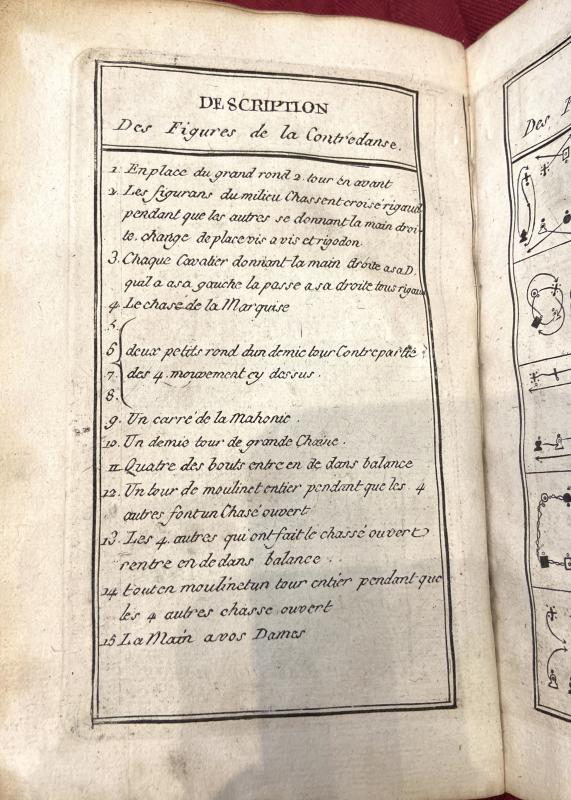 DESCRIPTION
Des Figures de la Contredanse.
1. En place du grand rond 2. tour en avant
2. Les figurans du milieu Chassent croisé rigaud.
pendant que les autres se donnant la main droi-
te. change de place vis a vis et rigodon.
3. Chaque Cavalier donnant la main droite a sa D.
quil a a sa gauche la passe a sa droite tous rigaud
4. Le chasé de la Marquise
5.
6 deux petits rond dun demie tour Contrepartie
7. des 4. mouvement cy dessus.
8.
9. Un carré de la Mahonie.
10. Un demie tour de grande Chaine.
11. Quatre des bouts entre en de dans balance
12. Un tour de moulinet entier pendant que les 4
autres font un Chasé ouvert
13. Les 4. autres qui ont fait le chassé ouvert
rentre en de dans balance.
14 tout en moulinet un tour entier pendant que
les 4 autres chasse ouvert
15 La Main a vos Dames
Des